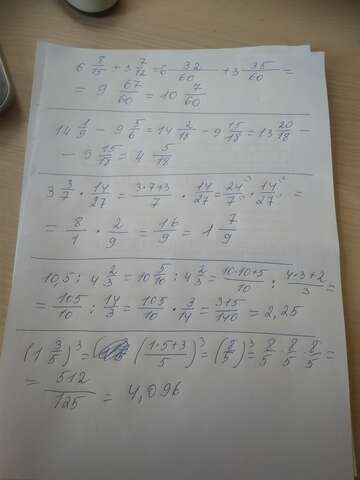 6 8/15 + 3 7/12 = 6 32/60 + 3 35/60 =
= 9 67/60 = 10 7/60
14 1/9 - 9 5/6 = 14 2/18 - 9 15/18 = 13 20/18 -
- 9 15/18 = 4 5/18
3 3/7 · 14/27 = 3·7+3/7 · 14/27 = 24/7 · 14/27 =
= 8/1 · 2/9 = 16/9 = 1 7/9
10,5 : 4 2/3 = 10 5/10 : 4 2/3 = 10·10+5/10 : 4·3+2/3 =
= 105/10 : 14/3 = 105/10 · 3/14 = 315/140 = 2,25
(1 3/5)³ = (1·5+3/5)³ = (8/5)³ = 8/5 · 8/5 · 8/5 =
= 512/125 = 4,096